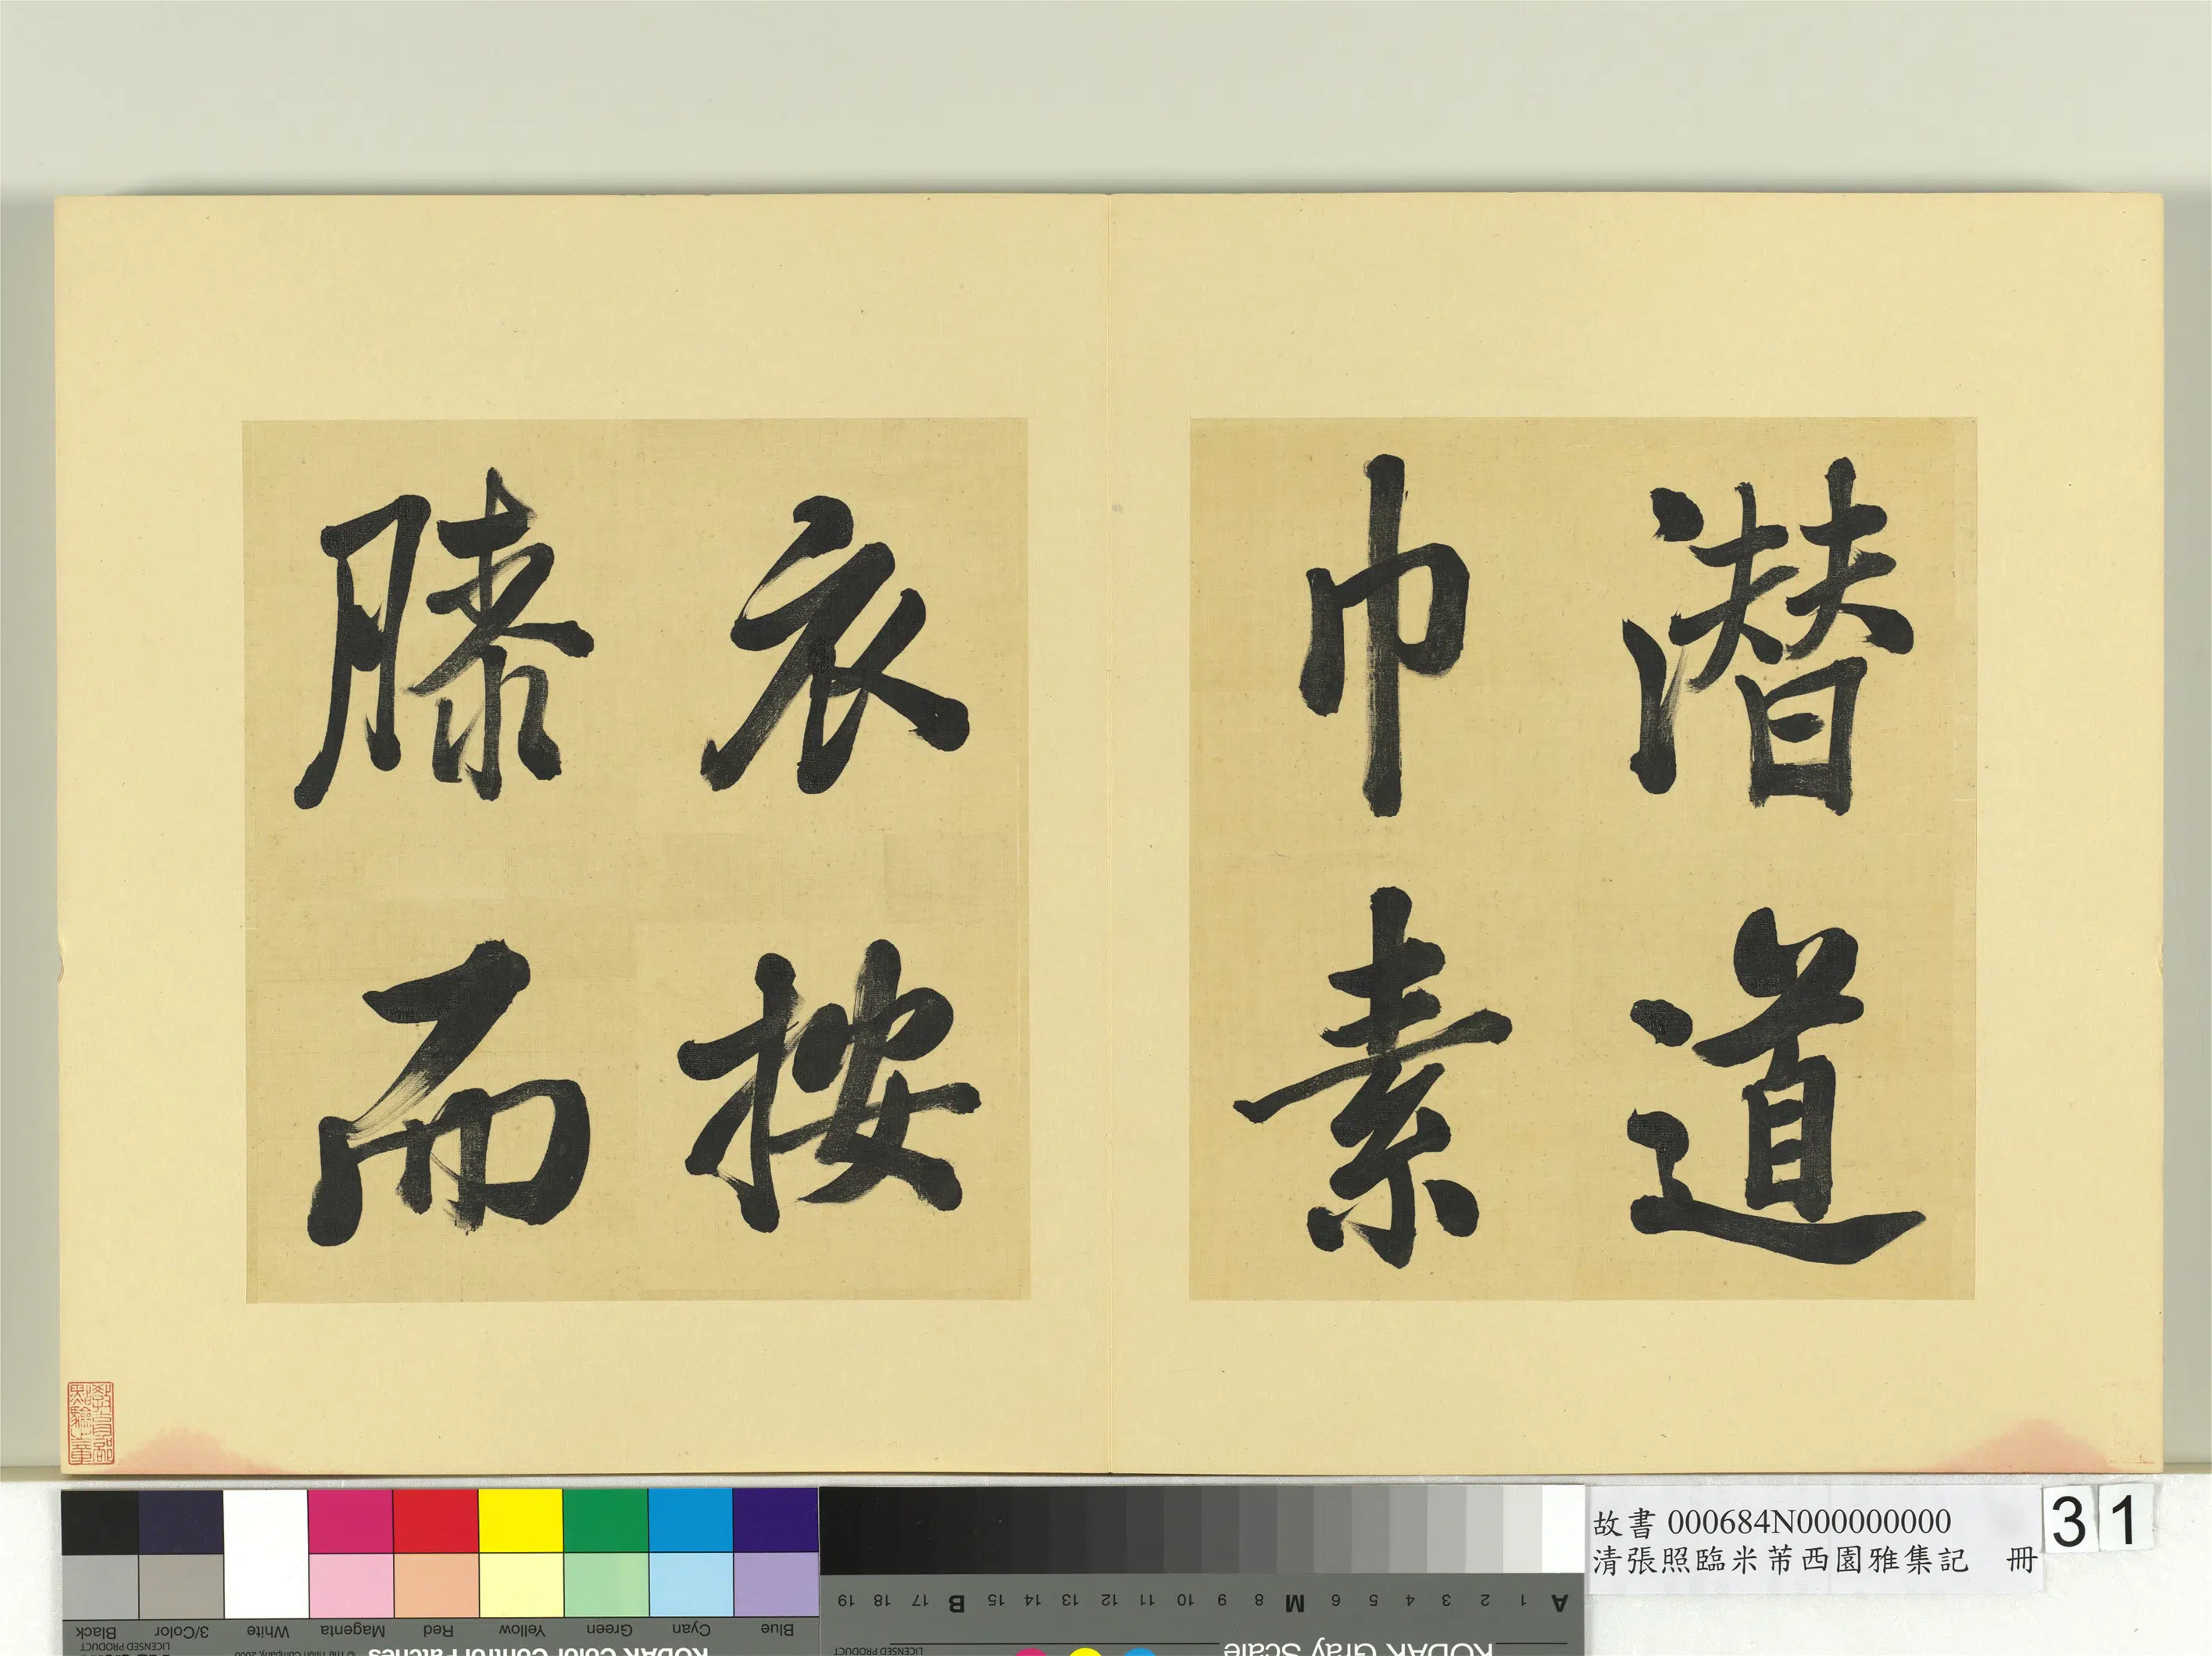 潛道
巾素
衣按
膝而
教育部
點驗之章
故書 000684N000000000
清張照臨米芾西園雅集記 冊
31
Blue
Cyan
Green
Yellow
Red
Magenta
White
3/Color
Black
KODAK Color Control Patches
© The Tiffen Company, 2000
LICENSED PRODUCT
A 1 2 3 4 5 6 M 8 9 10 11 12 13 14 15 B 17 18 19
KODAK Gray Scale
LICENSED PRODUCT